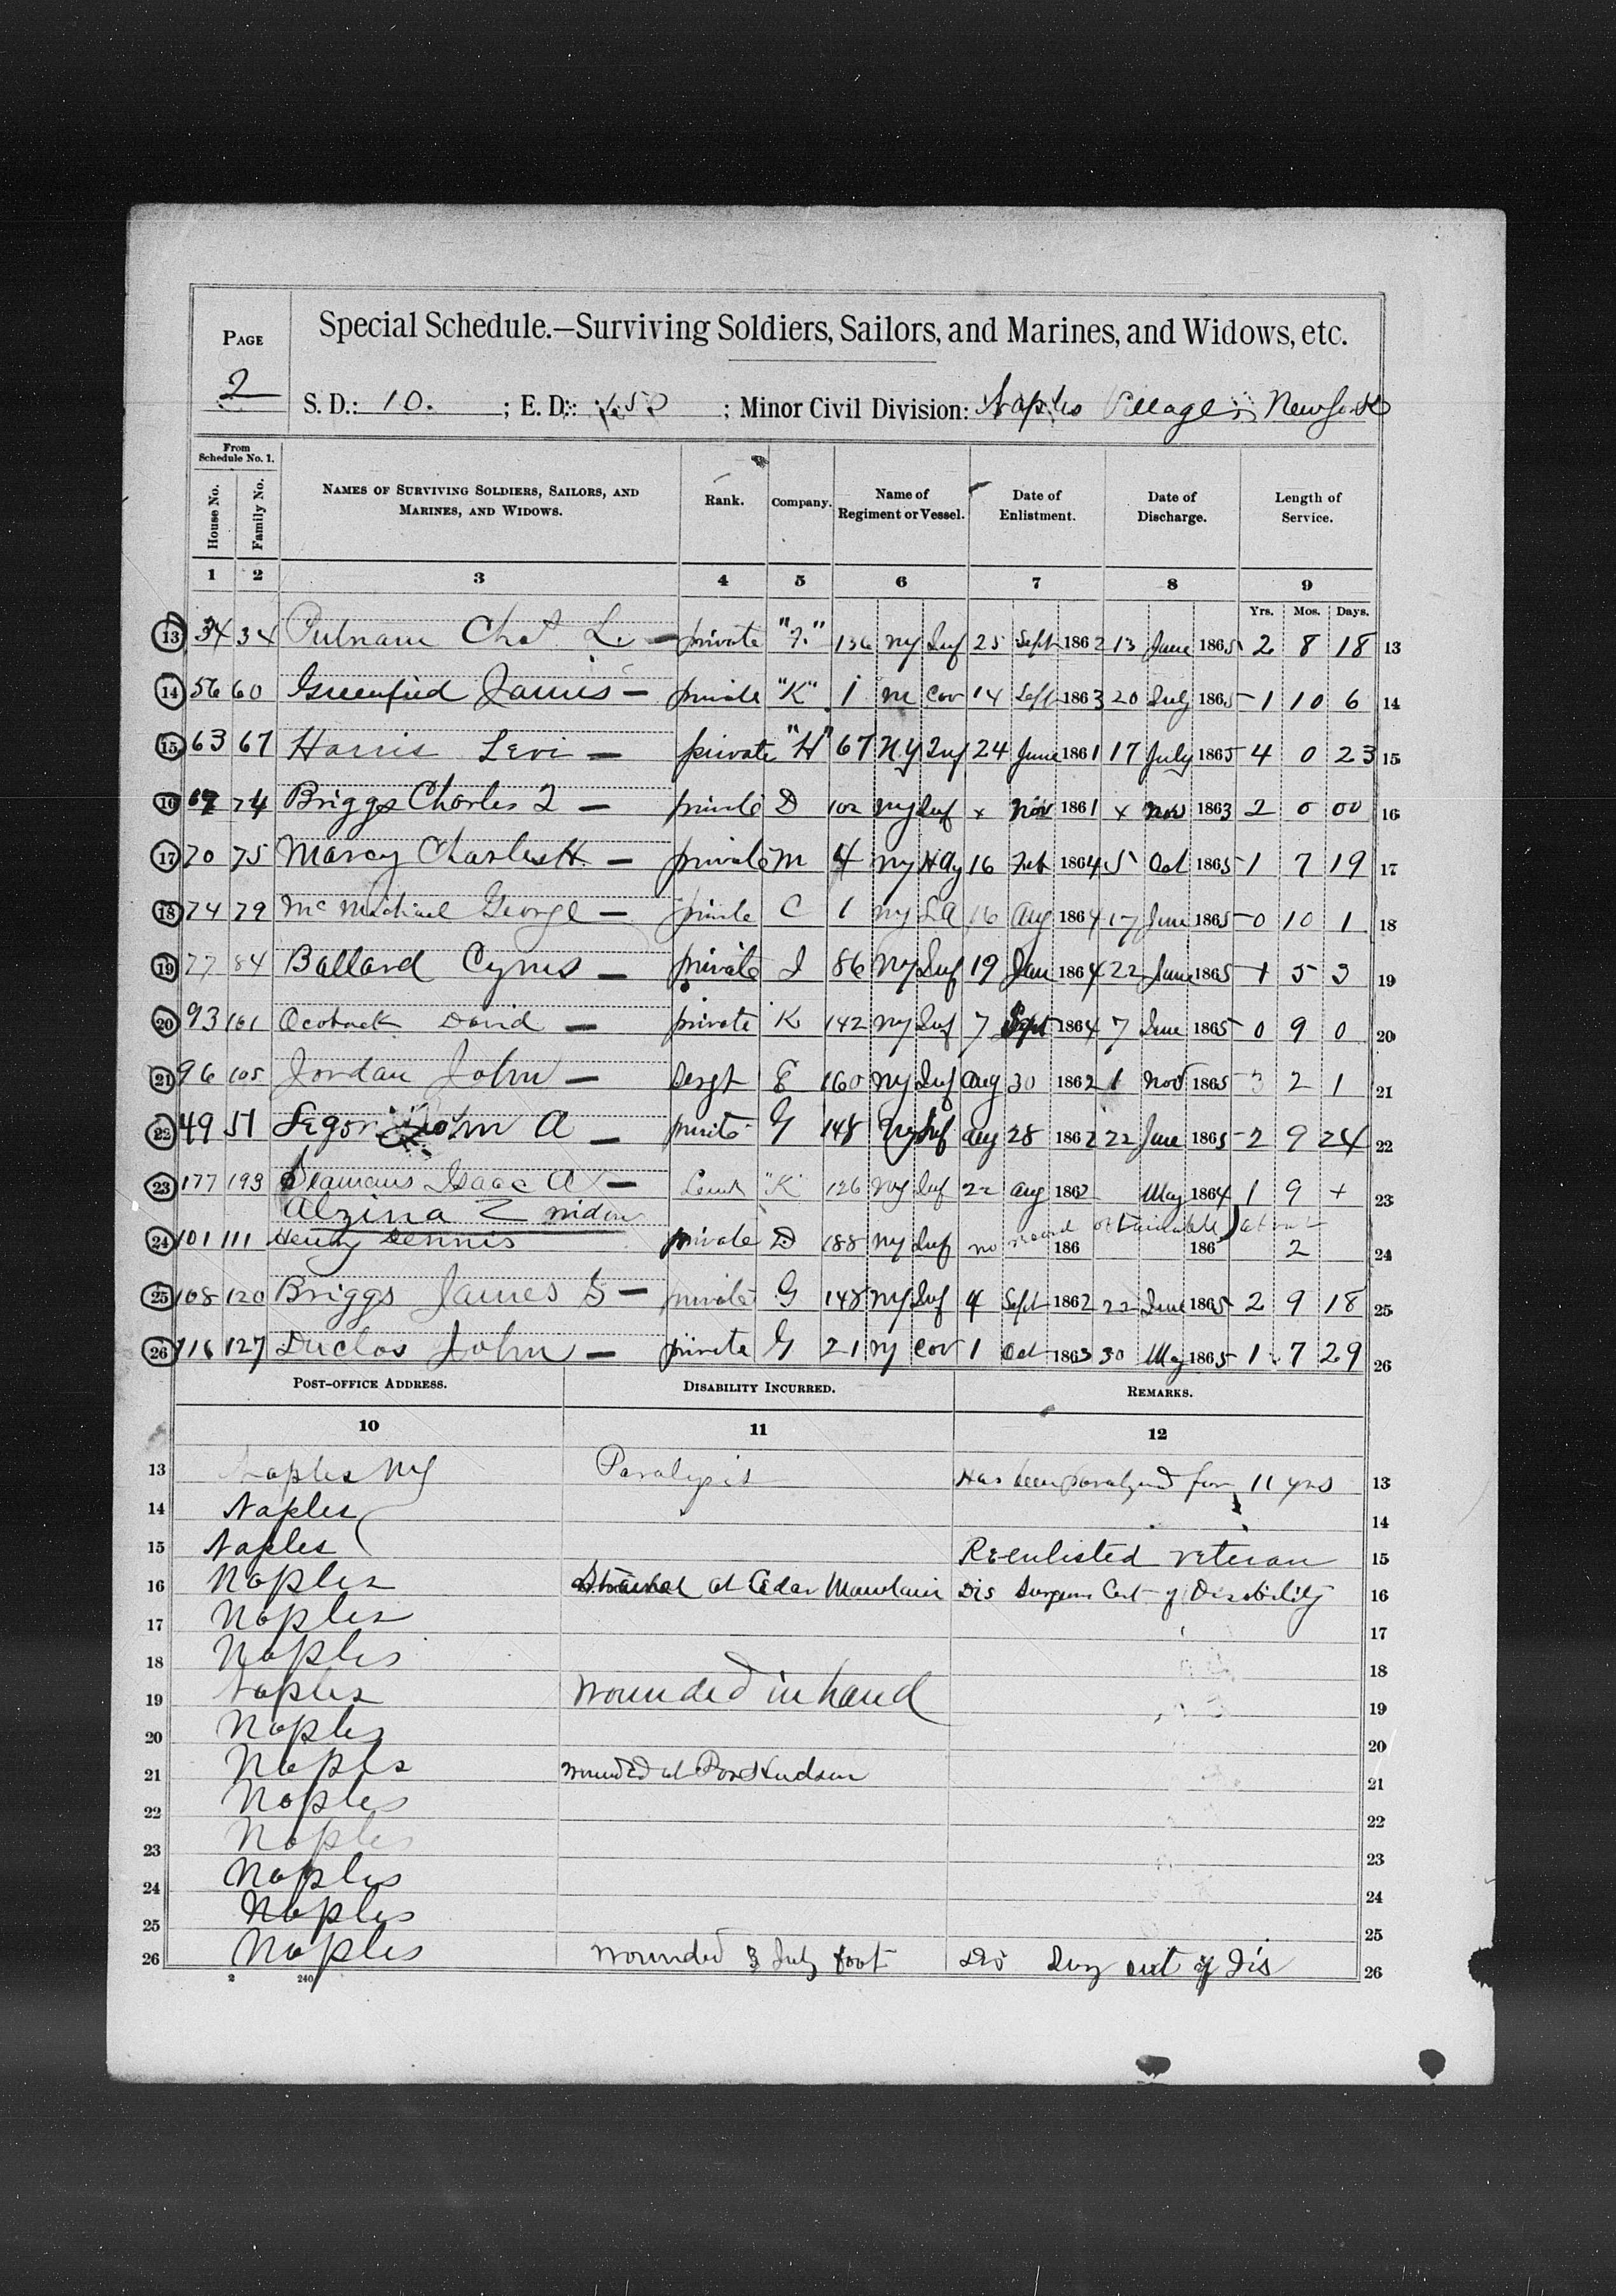 PAGE
2
Special Schedule.—Surviving Soldiers, Sailors, and Marines, and Widows, etc.
S. D.: 10. ; E. D.: ; Minor Civil Division: Naples Village, New York
From Schedule No. 1.
House No. Family No. NAMES OF SURVIVING SOLDIERS, SAILORS, AND MARINES, AND WIDOWS. Rank. Company. Name of Regiment or Vessel. Date of Enlistment. Date of Discharge. Length of Service.
1 2 3 4 5 6 7 8 9
Yrs. Mos. Days.
13 34 34 Putnam Chas L. — private 136 NY Inf 25 Sept 1862 13 June 1865 2 8 18 13
14 56 60 Greenfied James — private "K" 1 m Cav 14 Sept 1863 20 July 1865 1 10 6 14
15 63 67 Harris Levi — private "H" 67 N.Y Inf 24 June 1861 17 July 1865 4 0 23 15
16 74 Briggs Charles — private D 102 NY Inf x Nov 1861 x Nov 1863 2 0 00 16
17 70 75 Marcy Charles H. — private M 4 NY 16 Feb 1864 5 Oct 1865 1 7 19 17
18 74 79 McMichael George — private C 1 NY L A 16 Aug 1864 17 June 1865 0 10 1 18
19 77 84 Ballard Cyrus — private I 86 NY Inf 19 Jan 1864 22 June 1865 1 5 3 19
20 93 101 Ocoback David — private K 142 NY Inf 7 Sept 1864 7 June 1865 0 9 0 20
21 96 105 Jordan John — Sergt E 160 NY Inf Aug 30 1862 1 Nov 1865 3 2 1 21
22 49 51 John A — private G 148 NY Inf Aug 28 1862 22 June 1865 2 9 24 22
23 177 193 Seamans Isaac A — Leut "K" 126 NY Inf 22 Aug 1862 May 1864 1 9 + 23
Alzina Z widow
24 101 111 Henry Dennis private D 188 NY Inf no record obtainable about 186 186 2 24
25 108 120 Briggs James S — private G 148 NY Inf 4 Sept 1862 22 June 1865 2 9 18 25
26 116 127 Duclos John — private G 21 NY Cav 1 Oct 1863 30 May 1865 1 7 29 26
POST-OFFICE ADDRESS. DISABILITY INCURRED. REMARKS.
10 11 12
13 Naples NY Paralysis Has been paralyzed for 11 yrs 13
14 Naples 14
15 Naples Reenlisted veteran 15
16 Naples at Cedar Mountain Dis Surgeons Cert of Disability 16
17 Naples 17
18 Naples 18
19 Naples wounded in hand 19
20 Naples 20
21 Naples wounded at Port Hudson 21
22 Naples 22
23 Naples 23
24 Naples 24
25 Naples 25
26 Naples wounded 3 July foot Dis of Dis 26
2 240